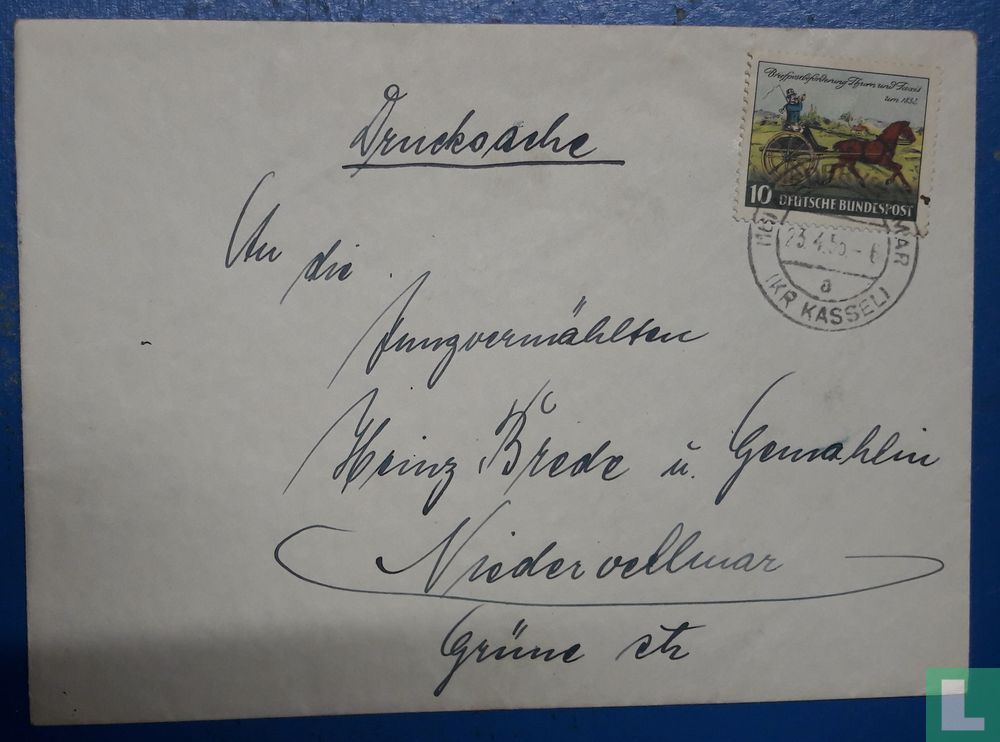 Briefpostbeförderung Thurn und Taxis
um 1852
10 DEUTSCHE BUNDESPOST
MAR
23.4.55.-6
a
(KR KASSEL)
Drucksache
An die
Jungvermählten
Heinz Brede u. Gemahlin
Niedervellmar
Grüne str
L